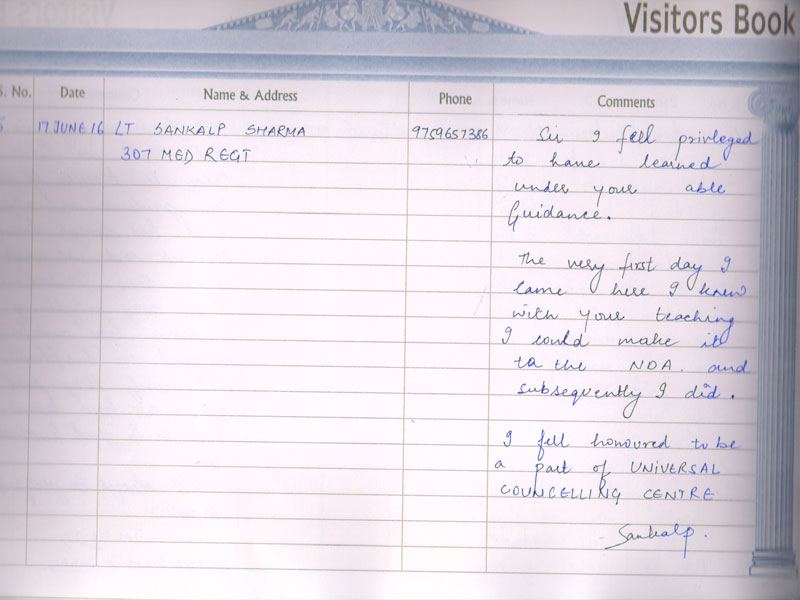 Visitors Book
S. No.
Date
Name & Address
Phone
Comments
17 JUNE 16
LT SANKALP SHARMA
307 MED REGT
9759657386
Sir I fell privleged
to have learned
under your able
Guidance.
The very first day I
came here I knew
with your teaching
I could make it
to the NDA. and
subsequently I did.
I fell honoured to be
a part of UNIVERSAL
COUNCELLING CENTRE
Sankalp.